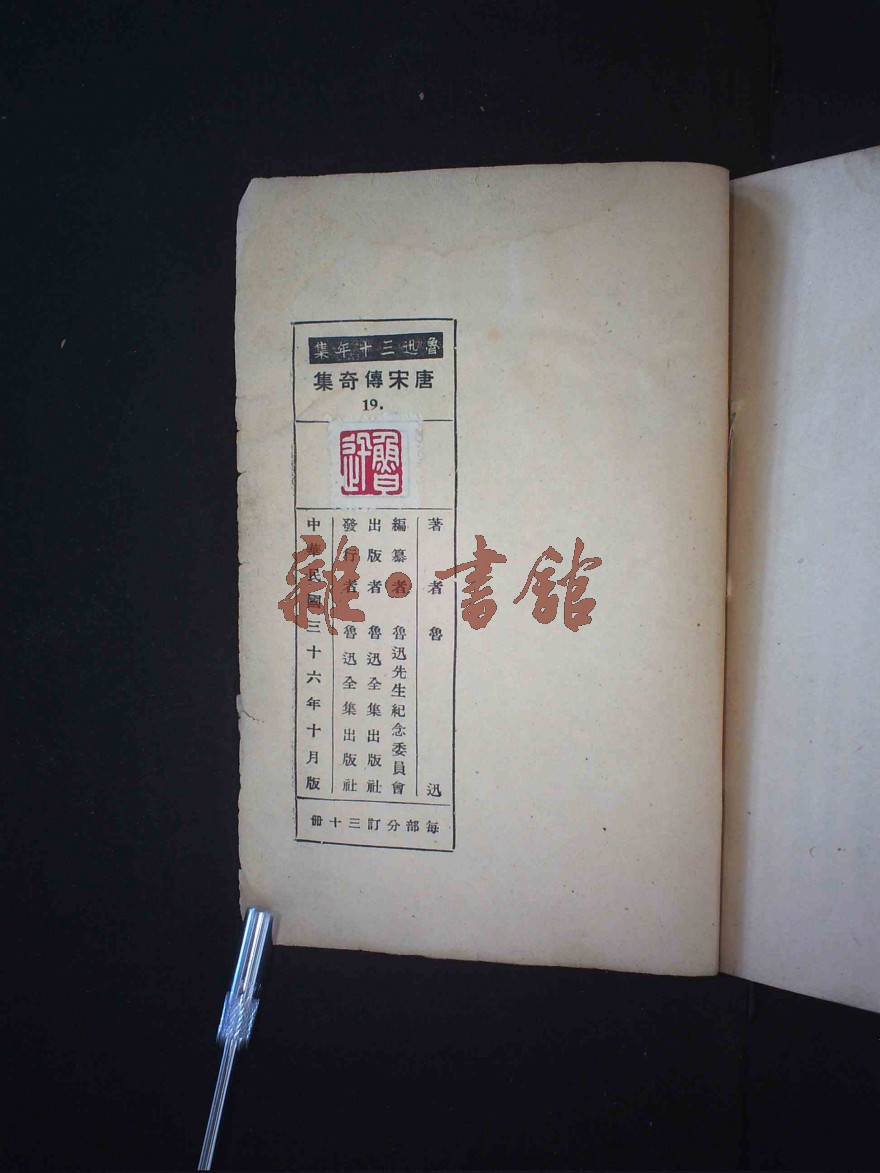 魯迅三十年集
唐宋傳奇集
19.
魯迅
著者魯迅
編纂者魯迅先生紀念委員會
出版者魯迅全集出版社
發行者魯迅全集出版社
中華民國三十六年十月版
每部分訂三十冊
雜·書館